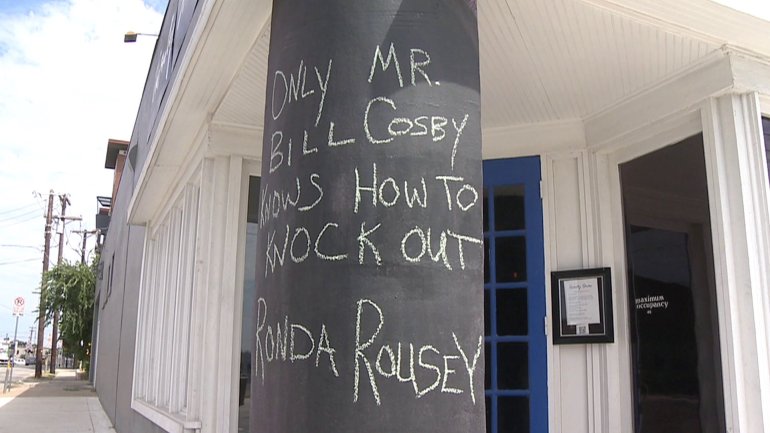 ONLY MR.
BILL COSBY
KNOWS HOW TO
KNOCK OUT
RONDA ROUSEY
maximum
occupancy